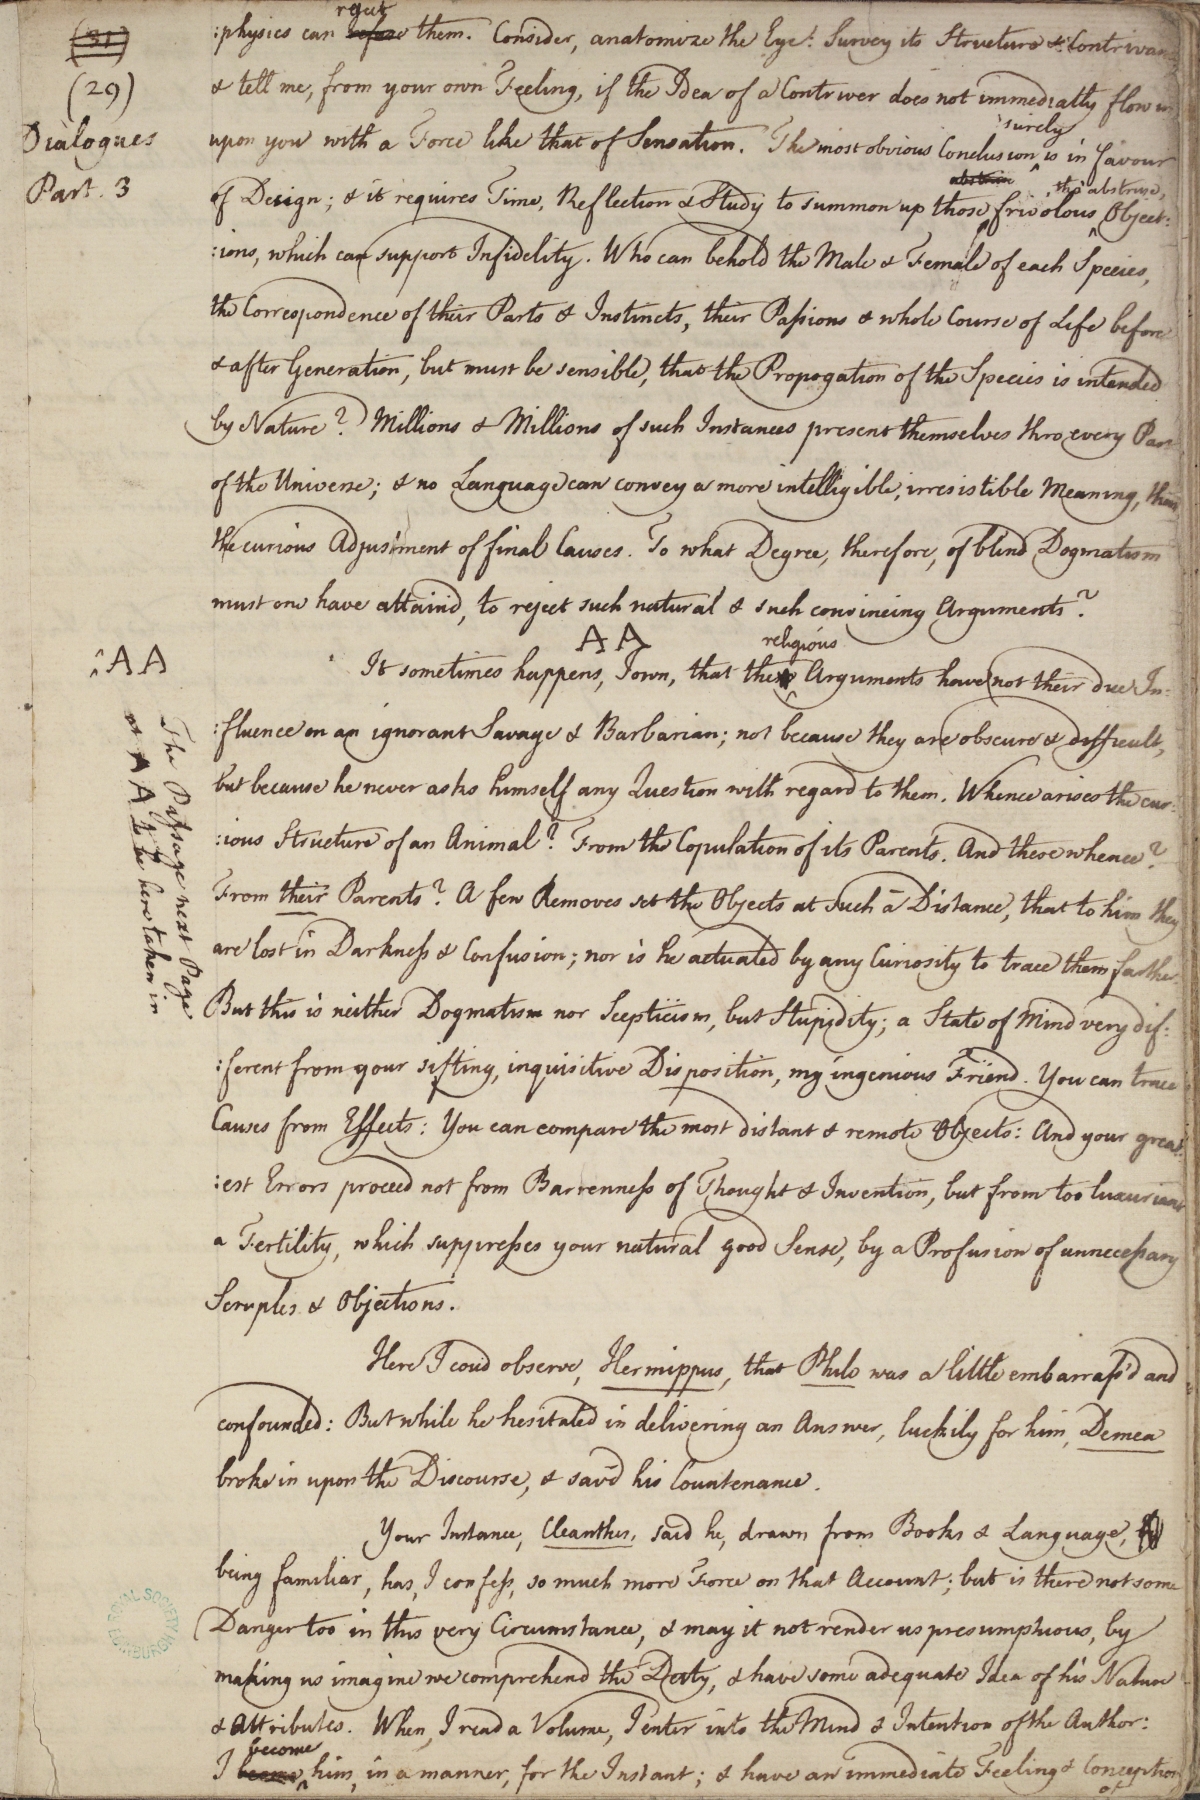 (31)
(29)
Dialogues
Part. 3
reject
:physics can refuse them. Consider, anatomize the Eye: Survey its Structure & Contrivance
& tell me, from your own Feeling, if the Idea of a Contriver does not immediatly flow in
upon you with a Force like that of Sensation. The most obvious Conclusion surely is in favour
of Design; & it requires Time, Reflection & Study to summon up those frivolous, tho' abstruse, Object:
:ions, which can support Infidelity. Who can behold the Male & Female of each Species,
the Correspondence of their Parts & Instincts, their Passions & whole Course of Life before
& after Generation, but must be sensible, that the Propogation of the Species is intended
by Nature? Millions & Millions of such Instances present themselves thro every Part
of the Universe; & no Language can convey a more intelligible, irresistible Meaning, than
the curious Adjustment of final Causes. To what Degree, therefore, of blind Dogmatism
must one have attain'd, to reject such natural & such convincing Arguments?
:AA
AA
religious
It sometimes happens, I own, that the Arguments have not their due In:
:fluence on an ignorant Savage & Barbarian; not because they are obscure & difficult,
but because he never asks himself any Question with regard to them. Whence arises the cur:
:ious Structure of an Animal? From the Copulation of its Parents. And these whence?
From their Parents? A few Removes set the Objects at such a Distance, that to him they
are lost in Darkness & Confusion; nor is he actuated by any Curiosity to trace them farther.
But this is neither Dogmatism nor Scepticism, but Stupidity; a State of Mind very dif:
:ferent from your sifting, inquisitive Disposition, my ingenious Friend. You can trace
Causes from Effects: You can compare the most distant & remote Objects: And your great:
:est Errors proceed not from Barrenness of Thought & Invention, but from too luxuriant
a Fertility, which suppresses your natural good Sense, by a Profusion of unnecessary
Scruples & Objections.
The Passage next Page
at AA to be here taken in
Here I coud observe, Hermippus, that Philo was a little embarrass'd and
confounded: But while he hesitated in delivering an Answer, luckily for him, Demea
broke in upon the Discourse, & sav'd his Countenance.
Your Instance, Cleanthes, said he, drawn from Books & Language,
being familiar, has, I confess, so much more Force on that Account; but is there not some
Danger too in this very Circumstance, & may it not render us presumptuous, by
making us imagine we comprehend the Deity, & have some adequate Idea of his Nature
& Attributes. When I read a Volume, I enter into the Mind & Intention of the Author:
become
I him, in a manner, for the Instant; & have an immediate Feeling & Conception
of
ROYAL SOCIETY
EDINBURGH